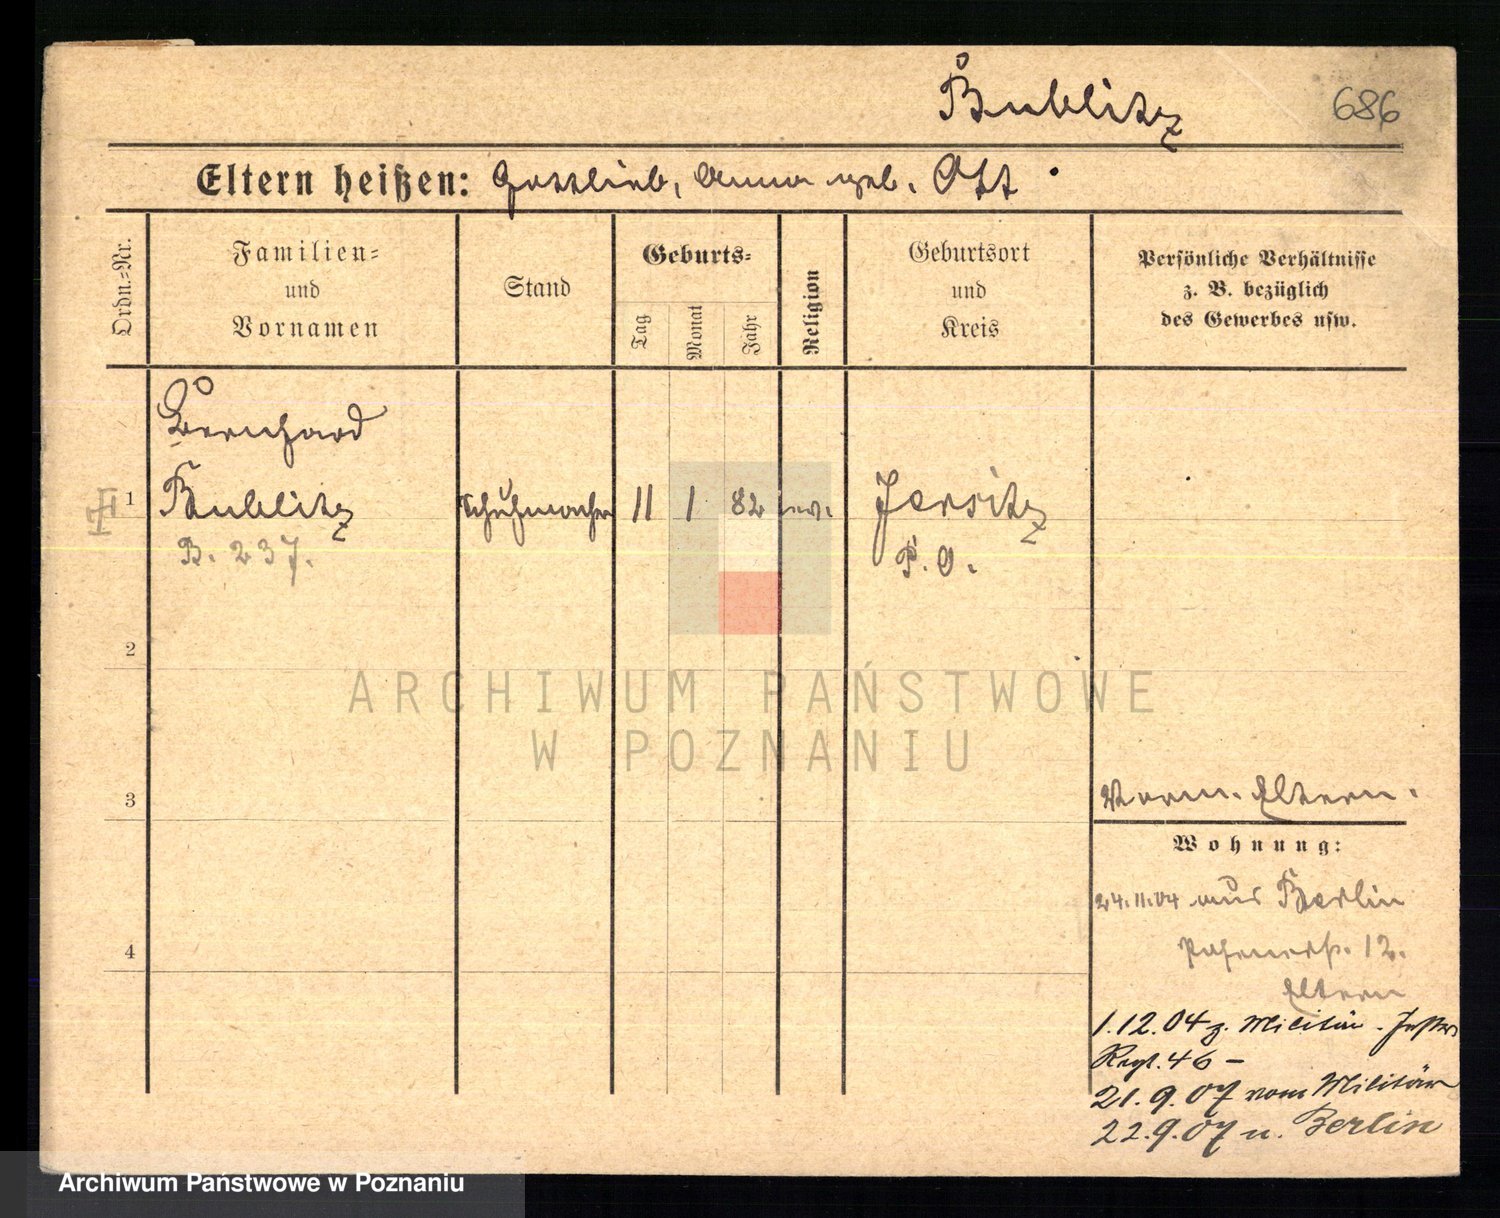 Bublitz
686
Eltern heißen: Gottlieb, Anna geb. Ott
Ordn.-Nr.
Familien-
und
Vornamen
Stand
Geburts-
Tag
Monat
Jahr
Religion
Geburtsort
und
Kreis
Persönliche Verhältnisse
z. B. bezüglich
des Gewerbes usw.
Bernhard
1 Bublitz Schuhmacher 11 1 82 ev. Jersitz
B. 237. P. O.
2
3
Eltern.
Wohnung:
24.11.04 aus Berlin
12.
Eltern
4
1.12.04 z. Militär.
Regt. 46 –
21.9.07 vom Militär
22.9.07 n. Berlin
ARCHIWUM PAŃSTWOWE
W POZNANIU
Archiwum Państwowe w Poznaniu